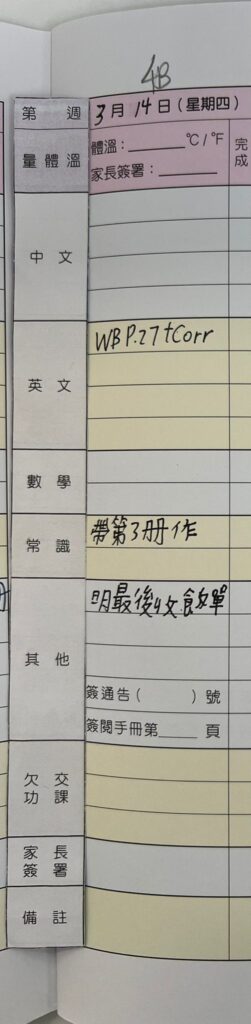 4B
第 週
3月14日(星期四)
量體溫
體溫：______℃/℉
家長簽署：______
完成
中文
英文
WB P.27+Corr
數學
常識
帶第3冊作
其他
明最後收飯單
簽通告( )號
簽閱手冊第____頁
欠交功課
家長簽署
備註